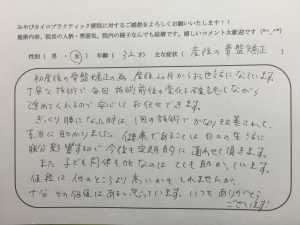 みやびカイロプラクティック療院に対するご感想をよろしくお願いいたします！！
施術内容、院長の人柄・雰囲気、院内の様子などでも結構です。嬉しいコメント大歓迎です（*^_^*）
性別（ 男 ・ 女 ） 年齢（ 32才 ） 主な症状（ 産後の骨盤矯正 ）
私は産後の骨盤矯正の為、産後2ヵ月からお世話になっています。
丁寧な施術で毎回施術前後の変化を確認しながら
進めてくれるので安心してお任せできます。
ぎっくり腰になった時は、1回の施術でかなり改善されて、
本当に助かりました。健康であることは日々の生活に
随分影響するので今後も定期的に通わせて頂きます。
また、子ども同伴もOKなのはとても助かっています。
値段は他のところより高いかもしれませんが、
十分その価値はあると思っています。いつもありがとう
ございます！